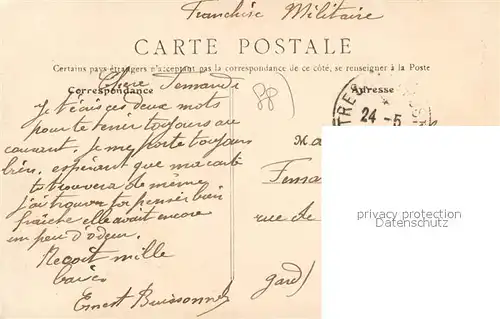 Franchise Militaire
CARTE POSTALE
Certains pays étrangers n'acceptent pas la correspondance de ce côté, se renseigner à la Poste
Correspondance
Adresse
Chere Fernande
(88)
TRES
24 - 5
Je t'écris ces deux mots
pour te tenir toujours au
courant. Je me porte toujours
bien, espérant que ma carte
te trouvera de même
j'ai trouver ta pensée bien
fraîche elle avait encore
un peu d'odeur.
Reçoit mille
Ernest Buissonne
Ma
Ferna
rue de
Gard)
privacy protection
Datenschutz